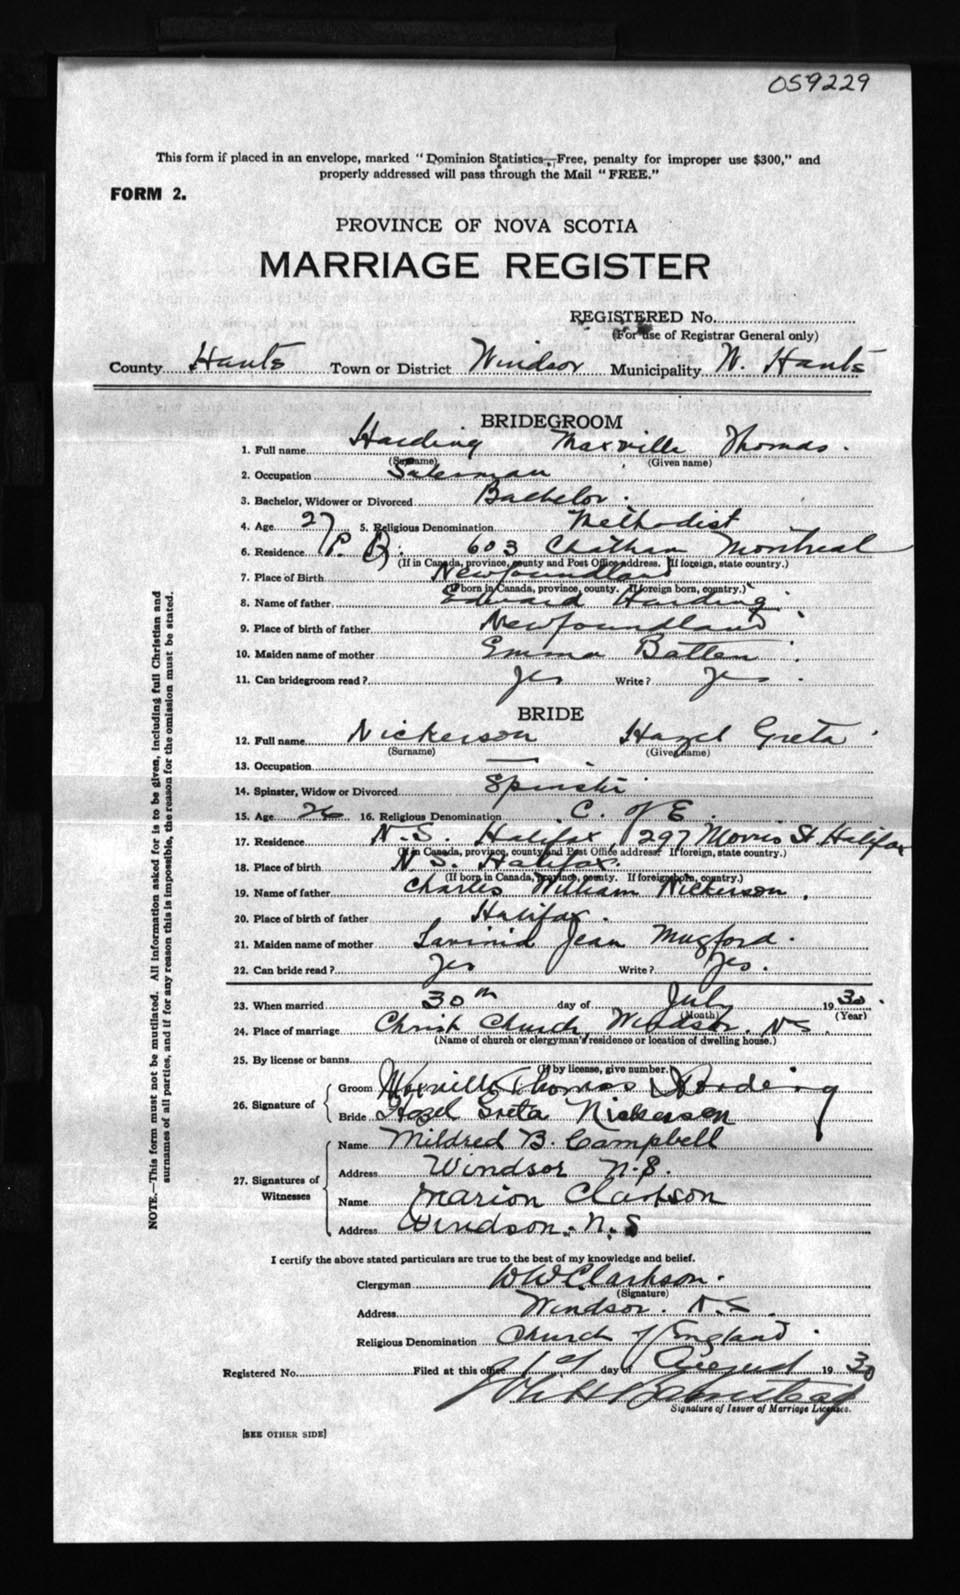 059229
This form if placed in an envelope, marked "Dominion Statistics—Free, penalty for improper use $300," and
properly addressed will pass through the Mail "FREE."
FORM 2.
PROVINCE OF NOVA SCOTIA
MARRIAGE REGISTER
REGISTERED No.
(For use of Registrar General only)
County Hants Town or District Windsor Municipality W. Hants
BRIDEGROOM
1. Full name Harding Maxville Thomas.
(Surname) (Given name)
2. Occupation Salesman
3. Bachelor, Widower or Divorced Bachelor.
4. Age 27 5. Religious Denomination Methodist
6. Residence P. Q. 603 Chatham Montreal
(If in Canada, province, county and Post Office address. If foreign, state country.)
7. Place of Birth Newfoundland
(If born in Canada, province, county. If foreign born, country.)
8. Name of father Edward Harding
9. Place of birth of father Newfoundland
10. Maiden name of mother Emma Batten
11. Can bridegroom read? Yes Write? Yes.
BRIDE
12. Full name Nickerson Hazel Greta
(Surname) (Given name)
13. Occupation —
14. Spinster, Widow or Divorced Spinster
15. Age 26 16. Religious Denomination C. of E.
17. Residence N.S. Halifax, 297 Morris St Halifax
(If in Canada, province, county and Post Office address. If foreign, state country.)
18. Place of birth N.S. Halifax.
(If born in Canada, province, county. If foreign born, country.)
19. Name of father Charles William Nickerson.
20. Place of birth of father Halifax.
21. Maiden name of mother Lavinia Jean Mugford.
22. Can bride read? Yes Write? Yes.
23. When married 30th day of July 1930.
(Month) (Year)
24. Place of marriage Christ Church, Windsor. N.S.
(Name of church or clergyman's residence or location of dwelling house.)
25. By license or banns
(If by license, give number.)
26. Signature of { Groom Maxville Thomas Harding
Bride Hazel Greta Nickerson
27. Signatures of Witnesses { Name Mildred B. Campbell
Address Windsor N.S.
Name Marion Clarkson
Address Windsor. N.S
I certify the above stated particulars are true to the best of my knowledge and belief.
Clergyman W W Clarkson.
(Signature)
Address Windsor. N.S.
Religious Denomination Church of England.
Registered No. Filed at this office 1st day of August 1930
Signature of Issuer of Marriage Licenses.
[SEE OTHER SIDE]
NOTE.—This form must not be mutilated. All information asked for is to be given, including full Christian and
surnames of all parties, and if for any reason this is impossible, the reason for the omission must be stated.